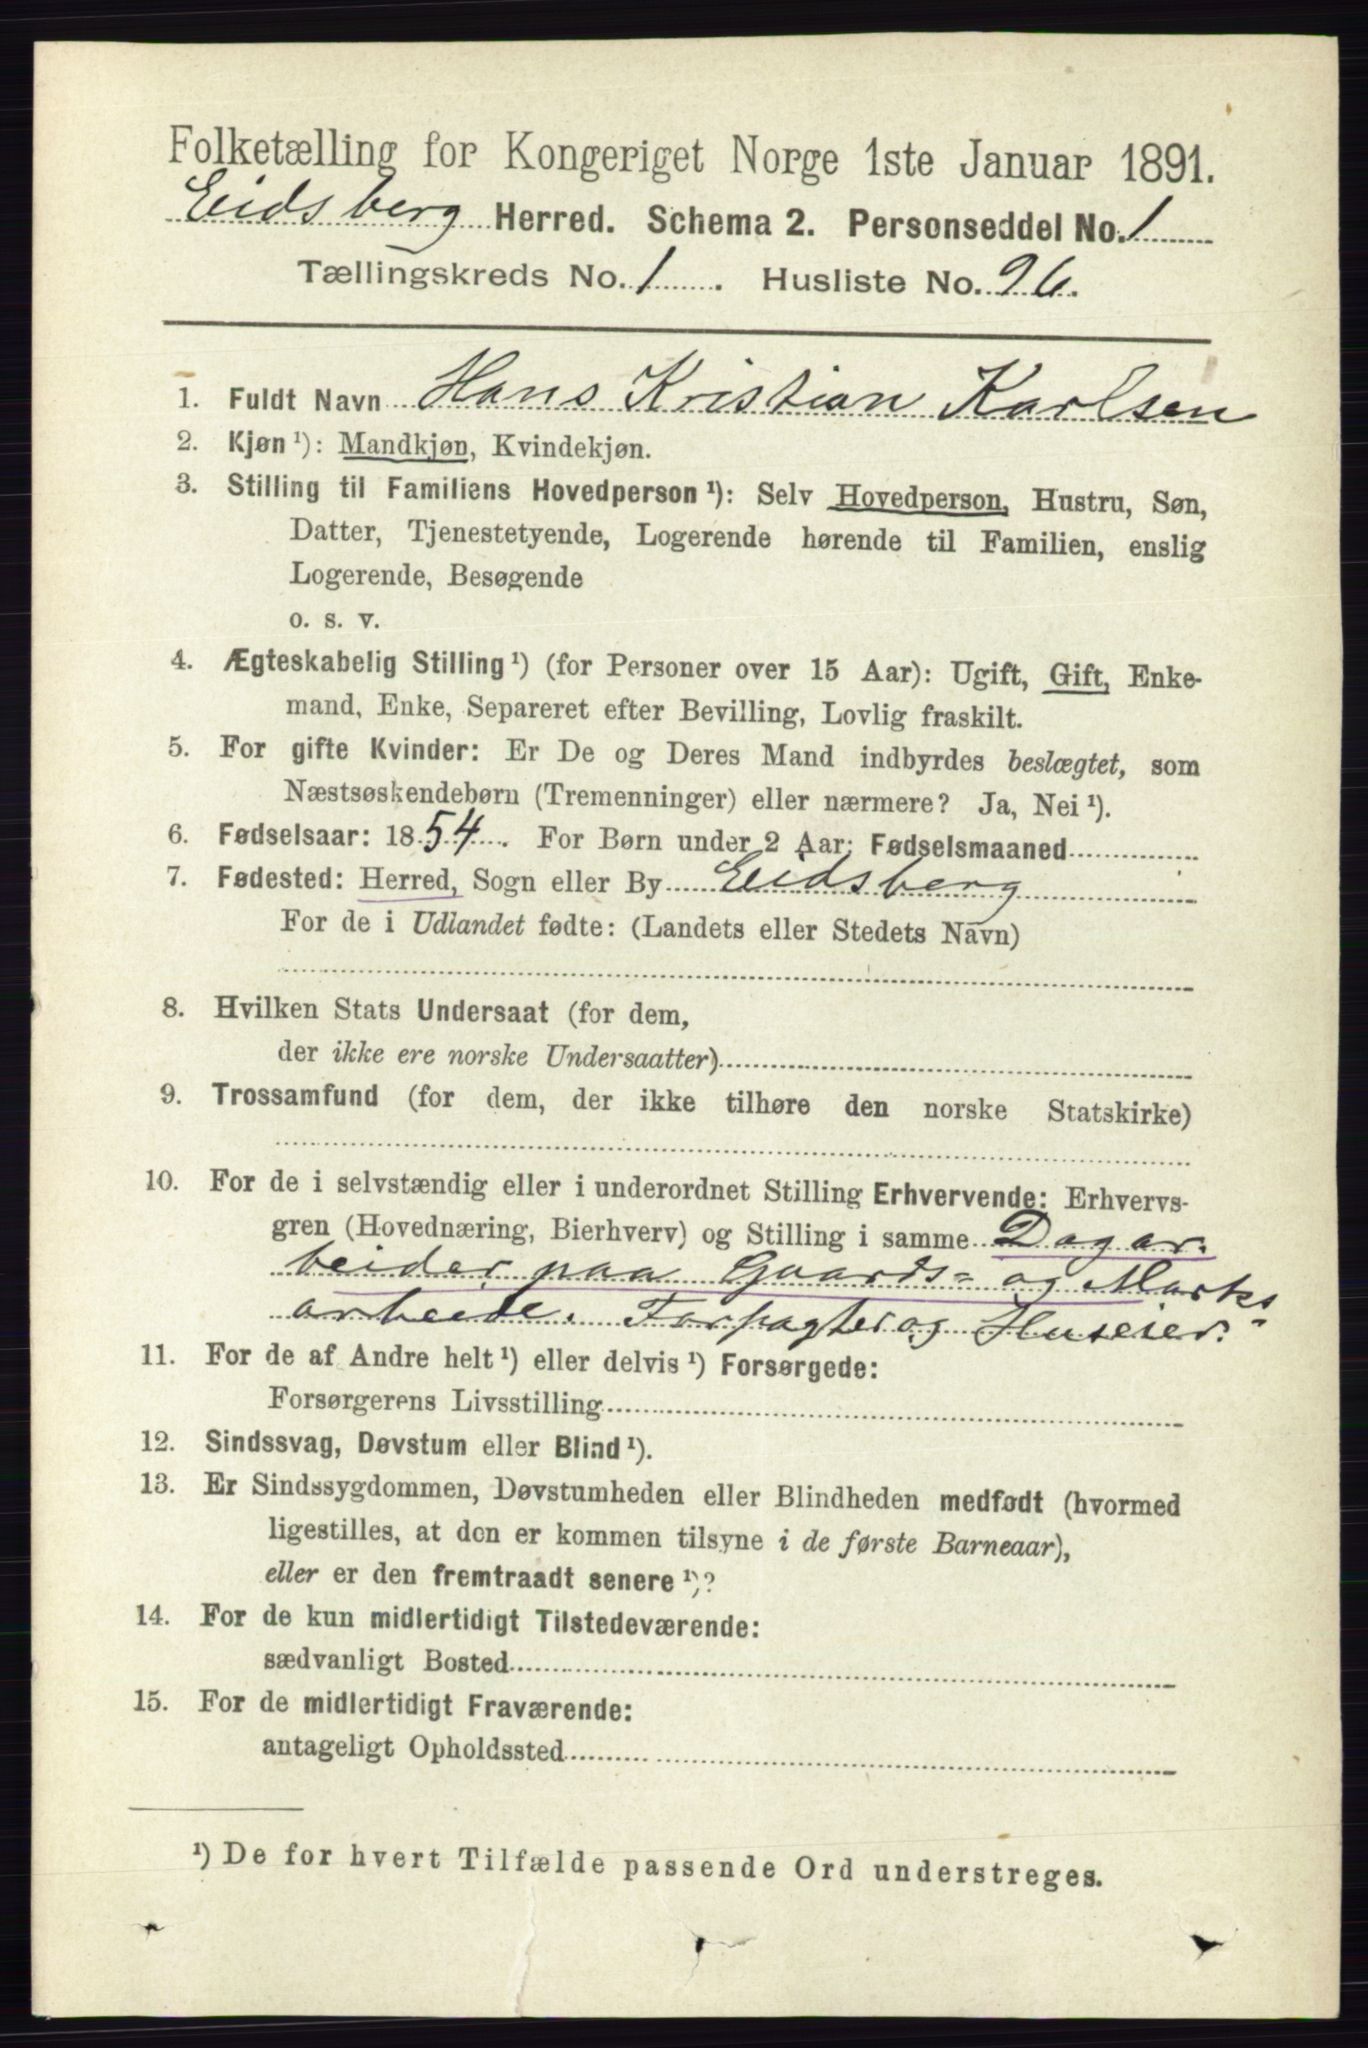 Folketælling for Kongeriget Norge 1ste Januar 1891.
Eidsberg Herred. Schema 2. Personseddel No. 1
Tællingskreds No. 1. Husliste No. 96.
1. Fuldt Navn Hans Kristian Karlsen
2. Kjøn ¹): Mandkjøn, Kvindekjøn.
3. Stilling til Familiens Hovedperson ¹): Selv Hovedperson, Hustru, Søn,
Datter, Tjenestetyende, Logerende hørende til Familien, enslig
Logerende, Besøgende
o. s. v.
4. Ægteskabelig Stilling ¹) (for Personer over 15 Aar): Ugift, Gift, Enke-
mand, Enke, Separeret efter Bevilling, Lovlig fraskilt.
5. For gifte Kvinder: Er De og Deres Mand indbyrdes beslægtet, som
Næstsøskendebørn (Tremenninger) eller nærmere? Ja, Nei ¹).
6. Fødselsaar: 1854. For Børn under 2 Aar: Fødselsmaaned
7. Fødested: Herred, Sogn eller By Eidsberg
For de i Udlandet fødte: (Landets eller Stedets Navn)
8. Hvilken Stats Undersaat (for dem,
der ikke ere norske Undersaatter)
9. Trossamfund (for dem, der ikke tilhøre den norske Statskirke)
10. For de i selvstændig eller i underordnet Stilling Erhvervende: Erhvervs-
gren (Hovednæring, Bierhverv) og Stilling i samme Dagar-
beider paa Gaards- og Marks-
arbeide. Forpagter og Huseier.
11. For de af Andre helt ¹) eller delvis ¹) Forsørgede:
Forsørgerens Livsstilling
12. Sindssvag, Døvstum eller Blind ¹).
13. Er Sindssygdommen, Døvstumheden eller Blindheden medfødt (hvormed
ligestilles, at den er kommen tilsyne i de første Barneaar),
eller er den fremtraadt senere ¹)?
14. For de kun midlertidigt Tilstedeværende:
sædvanligt Bosted
15. For de midlertidigt Fraværende:
antageligt Opholdssted
¹) De for hvert Tilfælde passende Ord understreges.